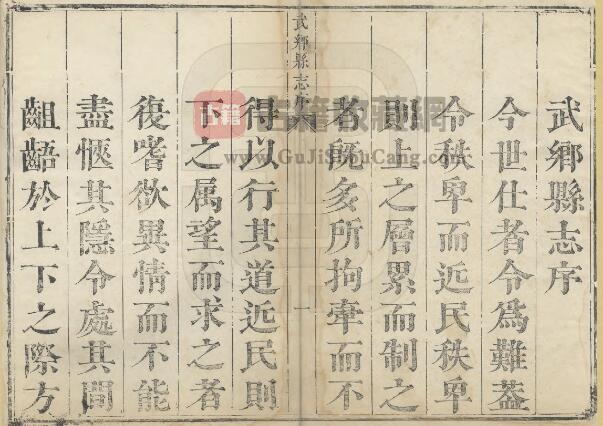 武鄉縣志序
今世仕者令爲難葢
令秩卑而近民秩卑
則上之層累而制之
者既多所拘牽而不
武鄉縣志序
一
得以行其道近民則
下之属望而求之者
復嗜欲異情而不能
盡愜其隱令處其間
齟齬於上下之際方
古籍
古籍收藏網
www.GuJiShouCang.com